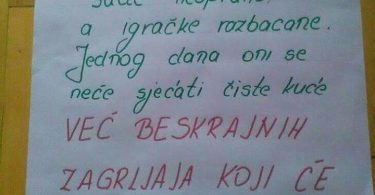 a igračke razbacane.
Jednog dana oni se
neće sjećati čiste kuće
VEĆ BESKRAJNIH
ZAGRLJAJA KOJI ĆE